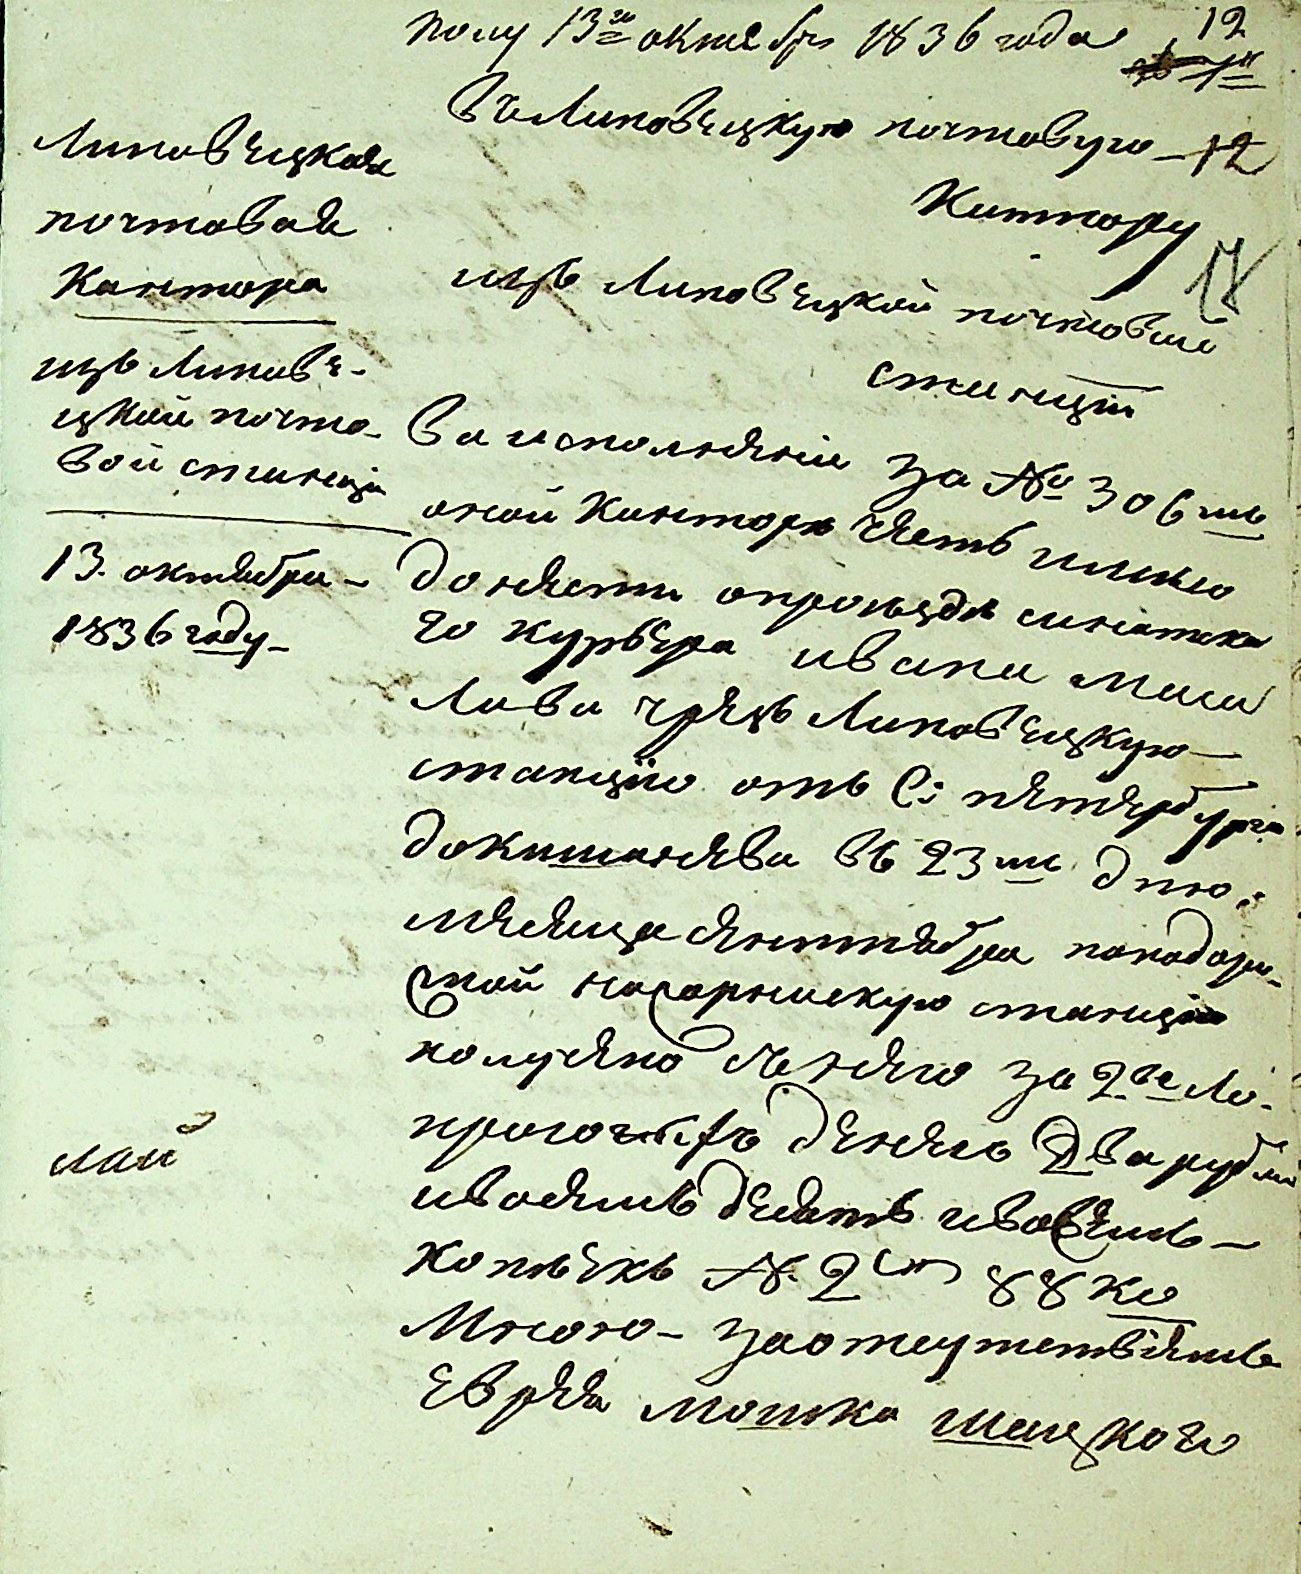 полу 13го октября 1836 года 12
въ Липовецкую почтовую 12
Кинтору
18
изъ Липовецкой почтовой
станции
Липовецкая
почтовая
Кантора
изъ Липове-
цкой почто-
вой станции
13. октября
1836 году
Во исполнение за № 306мъ
оной Канторе честь имею
донести опроезде сенатска
го курьера ивана Маси
лова чрезъ Липовецкую
станцию отъ С: петербурга
докишенева въ 23мъ дню
месяца сентября поподоро-
жной станцию
получено снего за 2ве ло.
прогочихъ денегъ Два рубли
ивосемъ десятъ ивосемъ
копѣекъ №. 2 88 ко
Мною заотсутствиемъ
еврея мошка шацкого